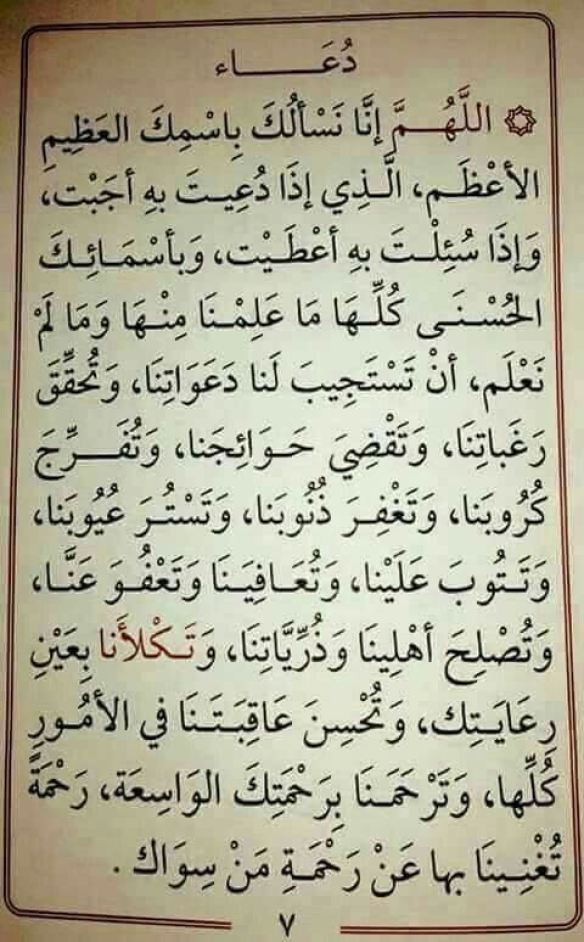 دُعَـــــاء
۞ اللَّهُـمَّ إنَّا نَسْأَلُكَ بِاسْمِكَ العَظِيمِ
الأعْظَـم، الَّـذِي إذَا دُعِيـتَ بِهِ أجَبْت،
وَإذَا سُئِلْـتَ بِهِ أعْطَـيْت، وَبأسْمَـائِـكَ
الحُسْـنَـى كُلِّـهَا مَا عَلِمْـنَا مِنْـهَا وَمَا لَمْ
نَعْلَم، أنْ تَسْتَجِيبَ لَنا دَعَوَاتِنَا، وَتُحَقِّقَ
رَغَباتِنَا، وَتَقْضِيَ حَـوَائِجَنا، وَتُفَـرِّجَ
كُرُوبَنا، وَتَغْفِـرَ ذُنُوبَنا، وَتَسْتُـرَ عُيُوبَنا،
وَتَـتُوبَ عَلَيْنا، وَتُعَـافِيَـنَا وَتَعْفُـوَ عَنَّـا،
وَتُصْلِحَ أهْلِينَا وَذُرِّيَّاتِنَا، وَتَـكْلأَنا بِعَيْنِ
رِعَايَـتِك، وَتُحْسِنَ عَاقِبَـتَـنَا في الأمُـورِ
كُلِّها، وَتَرْحَمَـنَا بِرَحْمَتِكَ الوَاسِعَة، رَحْمَةً
تُغْنِـينَا بها عَنْ رَحْمَـةِ مَنْ سِوَاك .
٧